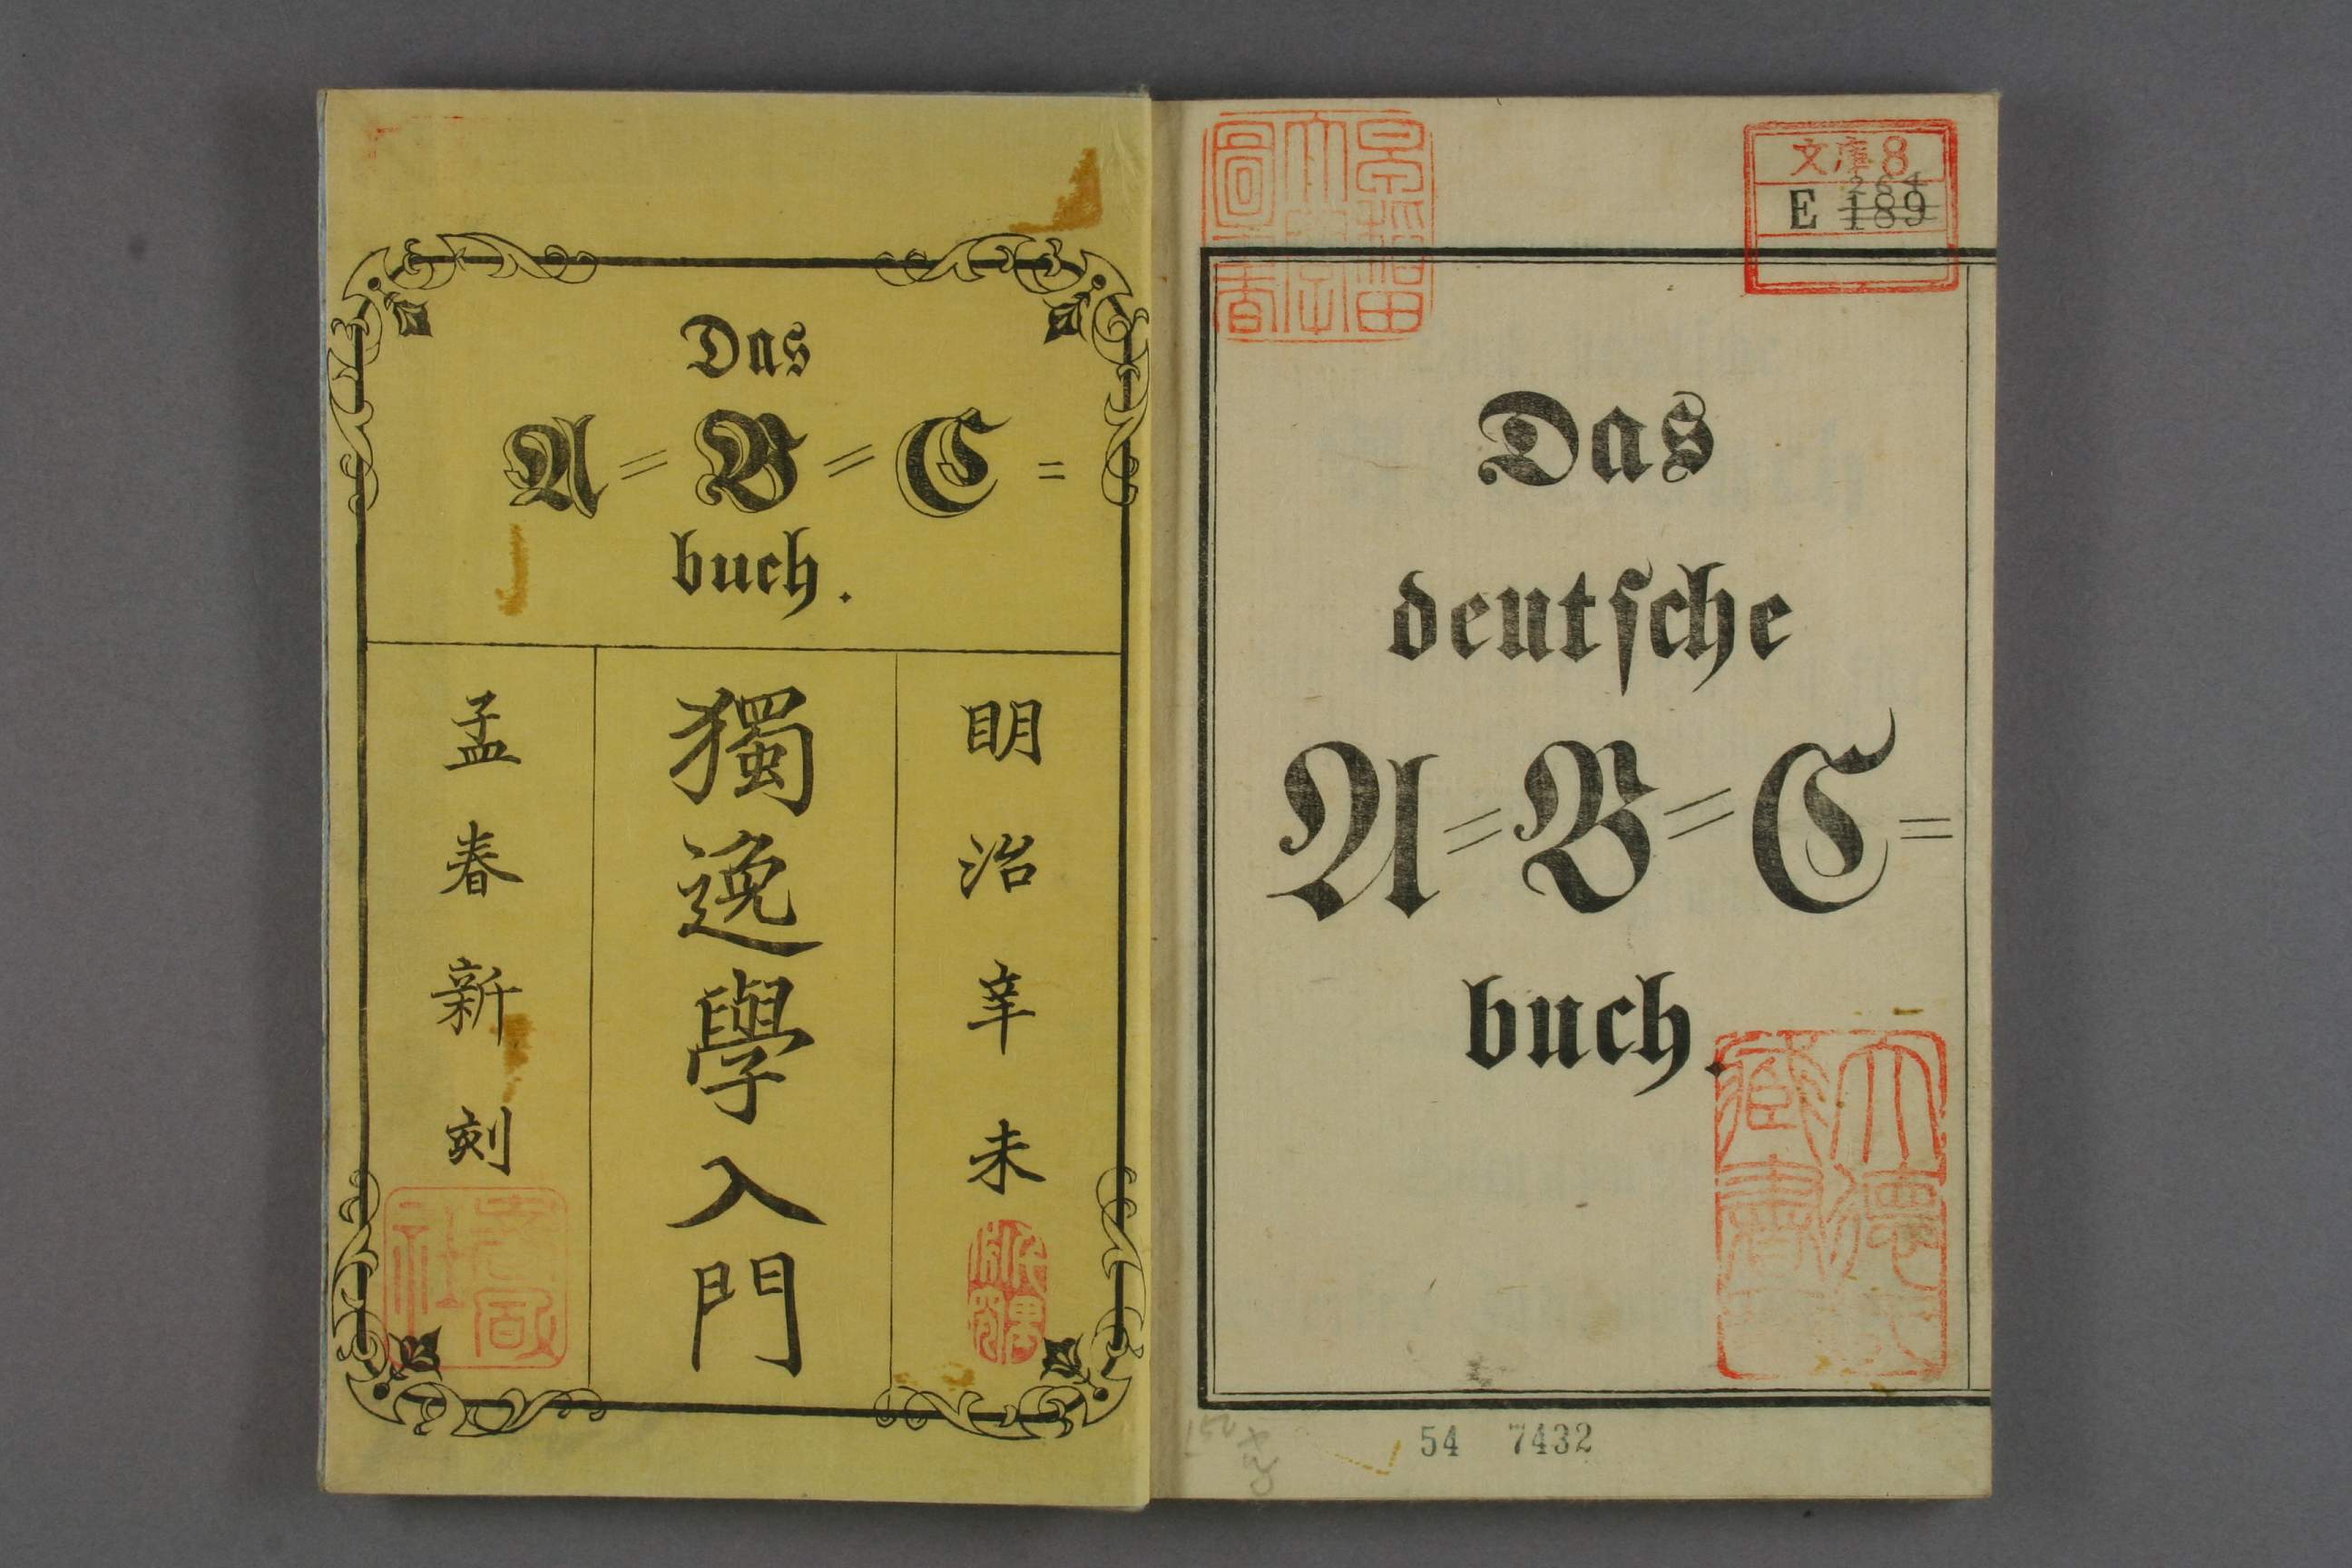 Das
A=B=C=
buch.
明治辛未
獨逸學入門
孟春新刻
文庫8
E 189
264
Das
deutſche
A=B=C=
buch.
54 7432